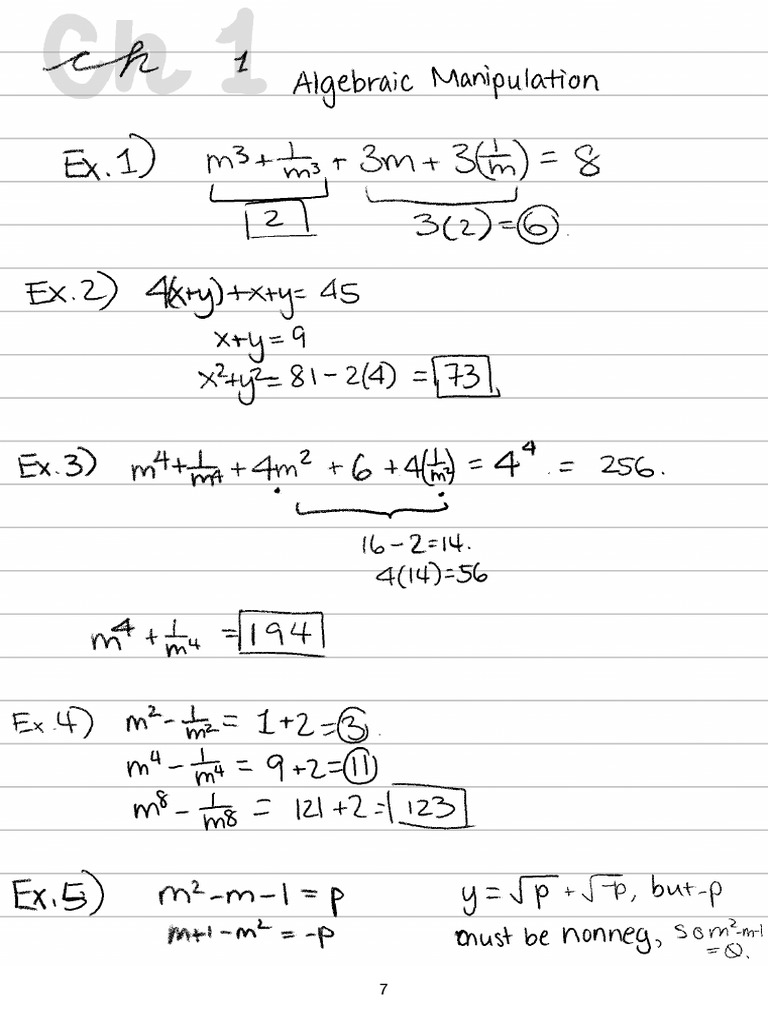 Ch 1
ch 1 Algebraic Manipulation
Ex. 1) m³ + 1/m³ + 3m + 3(1/m) = 8
2 3(2) = 6.
Ex. 2) 4(x+y) + x+y = 45
x+y = 9
x²+y² = 81 - 2(4) = 73.
Ex. 3) m⁴ + 1/m⁴ + 4m² + 6 + 4(1/m²) = 4⁴ = 256.
16 - 2 = 14.
4(14) = 56
m⁴ + 1/m⁴ = 194
Ex. 4) m² - 1/m² = 1 + 2 = 3.
m⁴ - 1/m⁴ = 9 + 2 = 11
m⁸ - 1/m⁸ = 121 + 2 = 123
Ex. 5) m² - m - 1 = p y = √p + √-p, but -p
m+1 - m² = -p must be nonneg, so m²-m-1
= 0.
7